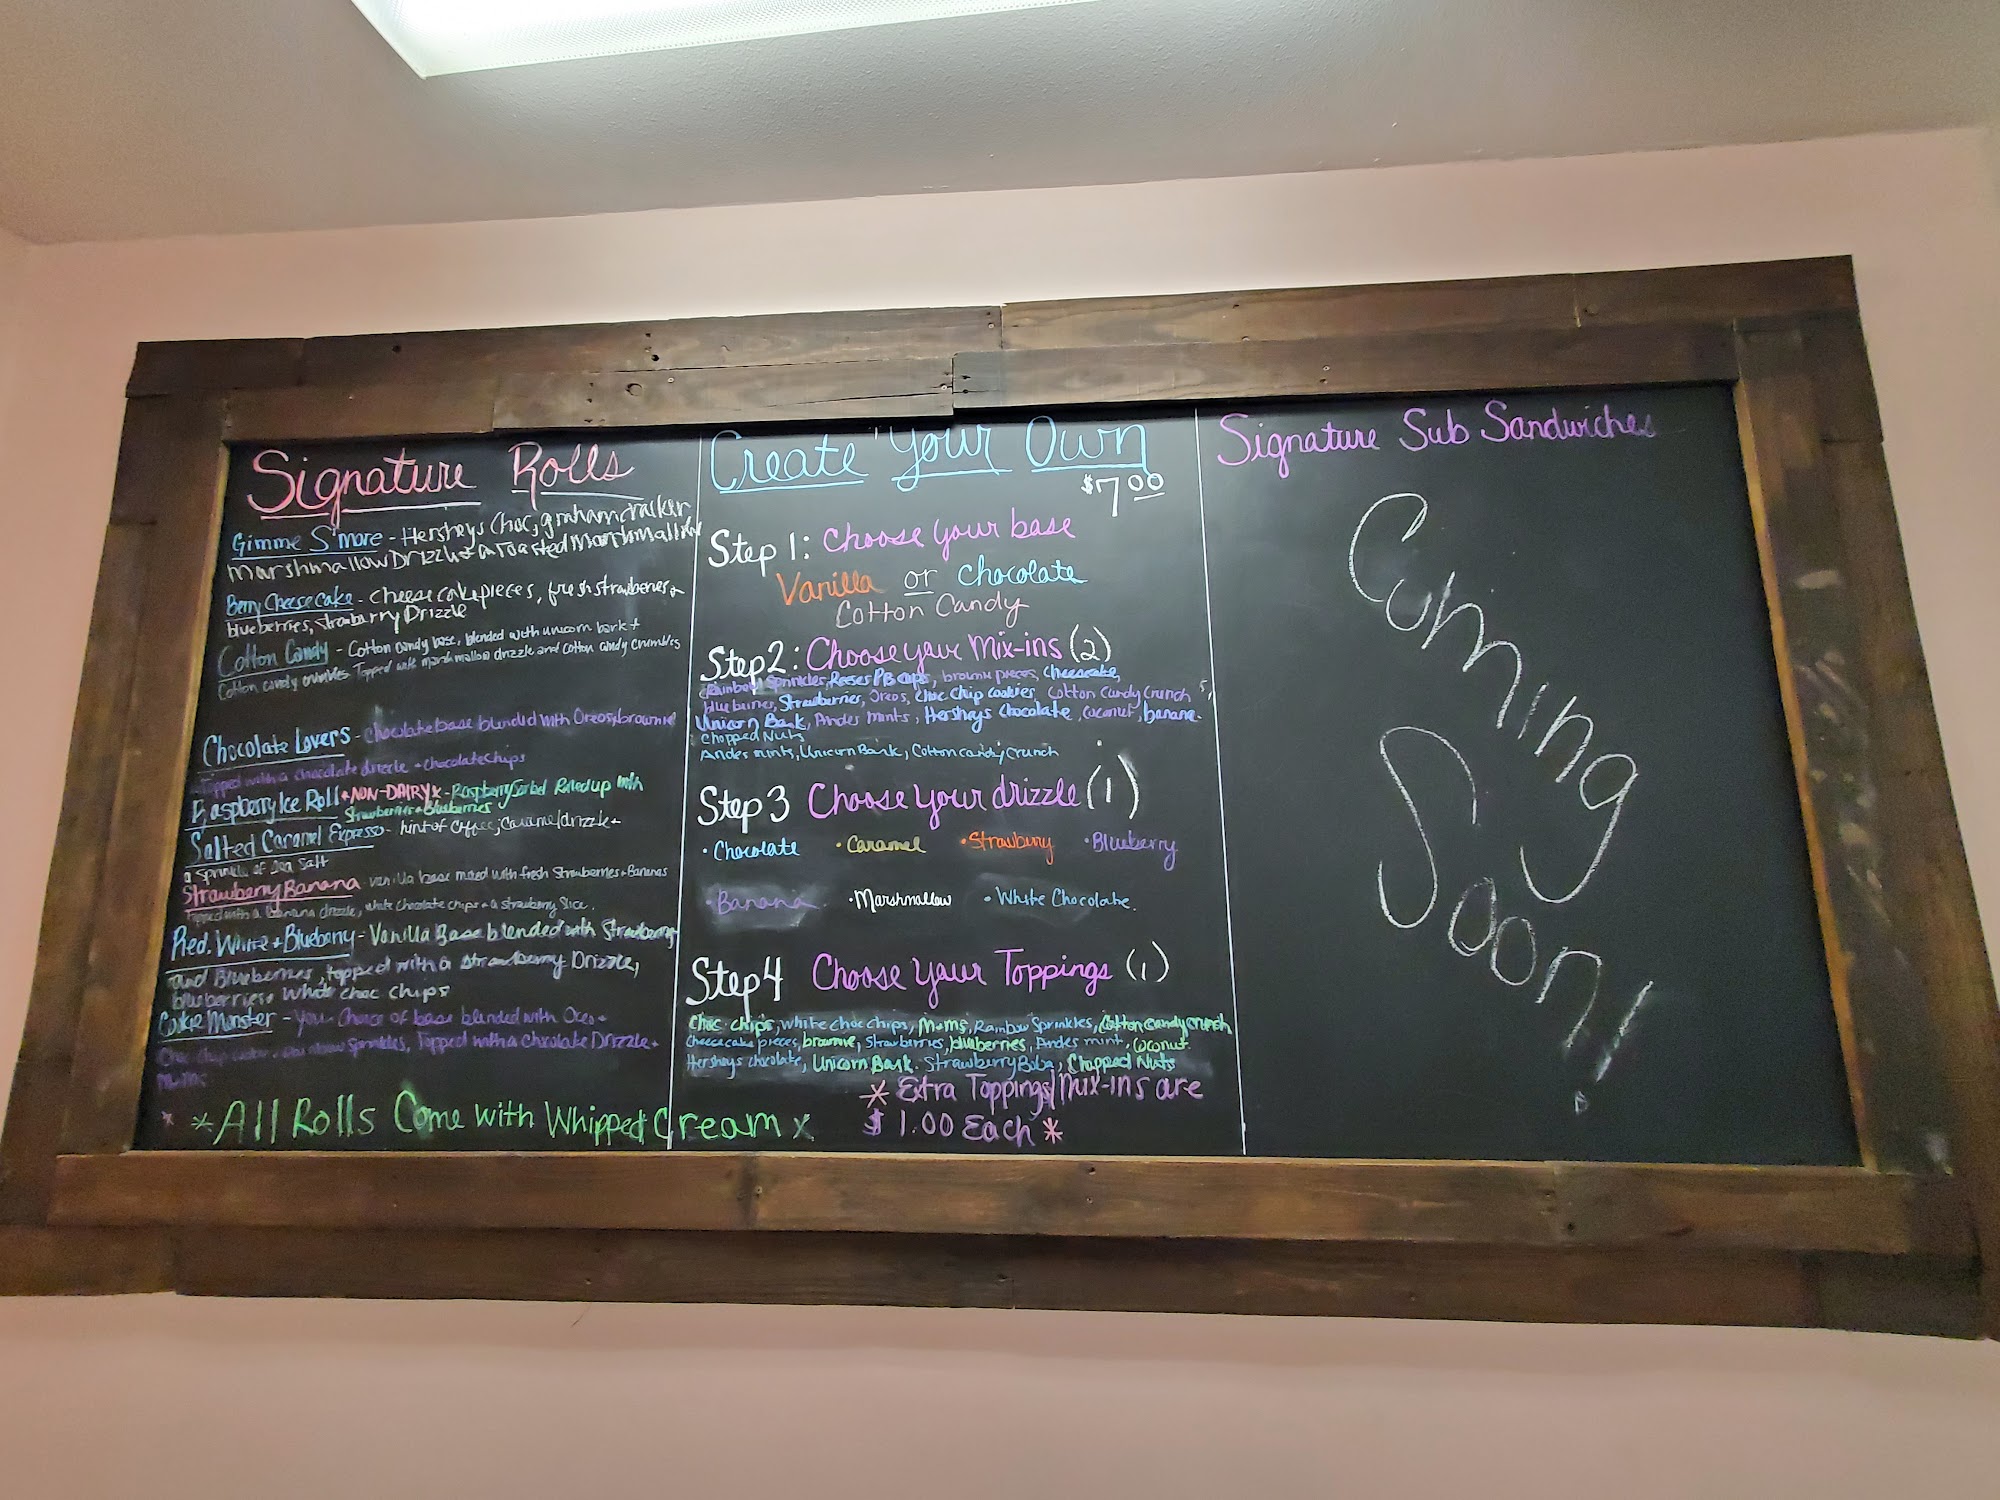 Signature Rolls
Gimme S'more - Hersheys Choc, graham cracker
Marshmallow Drizzle + a Toasted Marshmallow
Berry Cheese Cake - cheese cake pieces, fresh strawberries +
blueberries, strawbarry Drizzle
Cotton Candy - Cotton candy base, blended with unicorn bark +
Cotton candy crumbles Topped with marshmallow drizzle and cotton candy crumbles
Chocolate Lovers - chocolate base blended with Oreos, brownie
Topped with a chocolate drizzle + chocolate chips
Raspberry Ice Roll * NON-DAIRY * - Raspberry Sorbet Rolled up with
Strawberries + Blueberries
Salted Caramel Expresso - hint of coffee, Caramel drizzle +
a sprinkle of Sea Salt
Strawberry Banana - vanilla base mixed with fresh Strawberries + Bananas
Topped with a banana drizzle, white chocolate chips + a strawberry slice.
Red, White + Blueberry - Vanilla Base blended with Strawberry
and Blueberries, topped with a Strawberry Drizzle,
blueberries + white choc chips
Cookie Monster - your Choice of base blended with Oreo +
Choc chip cookie + Rainbow Sprinkles, Topped with a Chocolate Drizzle +
M+Ms
* * All Rolls Come with Whipped Cream x
Create Your Own
$7.00
Step 1: Choose your base
Vanilla or Chocolate
Cotton Candy
Step 2: Choose your Mix-ins (2)
Rainbow Sprinkles, Reeses PB cups, brownie pieces, cheesecake,
blueberries, Strawberries, Oreos, Choc chip cookies, cotton candy crunch
Unicorn Bark, Andes mints, Hersheys chocolate, coconut, banana
Chopped Nuts
Andes mints, Unicorn Bark, Cotton candy crunch
Step 3 Choose your drizzle (1)
· Chocolate · Caramel · Strawbury · Blueberry
· Banana · Marshmallow · White Chocolate.
Step 4 Choose your Toppings (1)
Choc chips, white choc chips, M+ms, Rainbow Sprinkles, Cotton candy crunch
Cheesecake pieces, brownie, Strawberries, blueberries, Andes mint, Coconut
Hersheys chocolate, Unicorn Bark, Strawberry Boba, Chopped Nuts
* Extra Toppings/Mix-ins are
$1.00 Each *
Signature Sub Sandwiches
Coming
Soon!